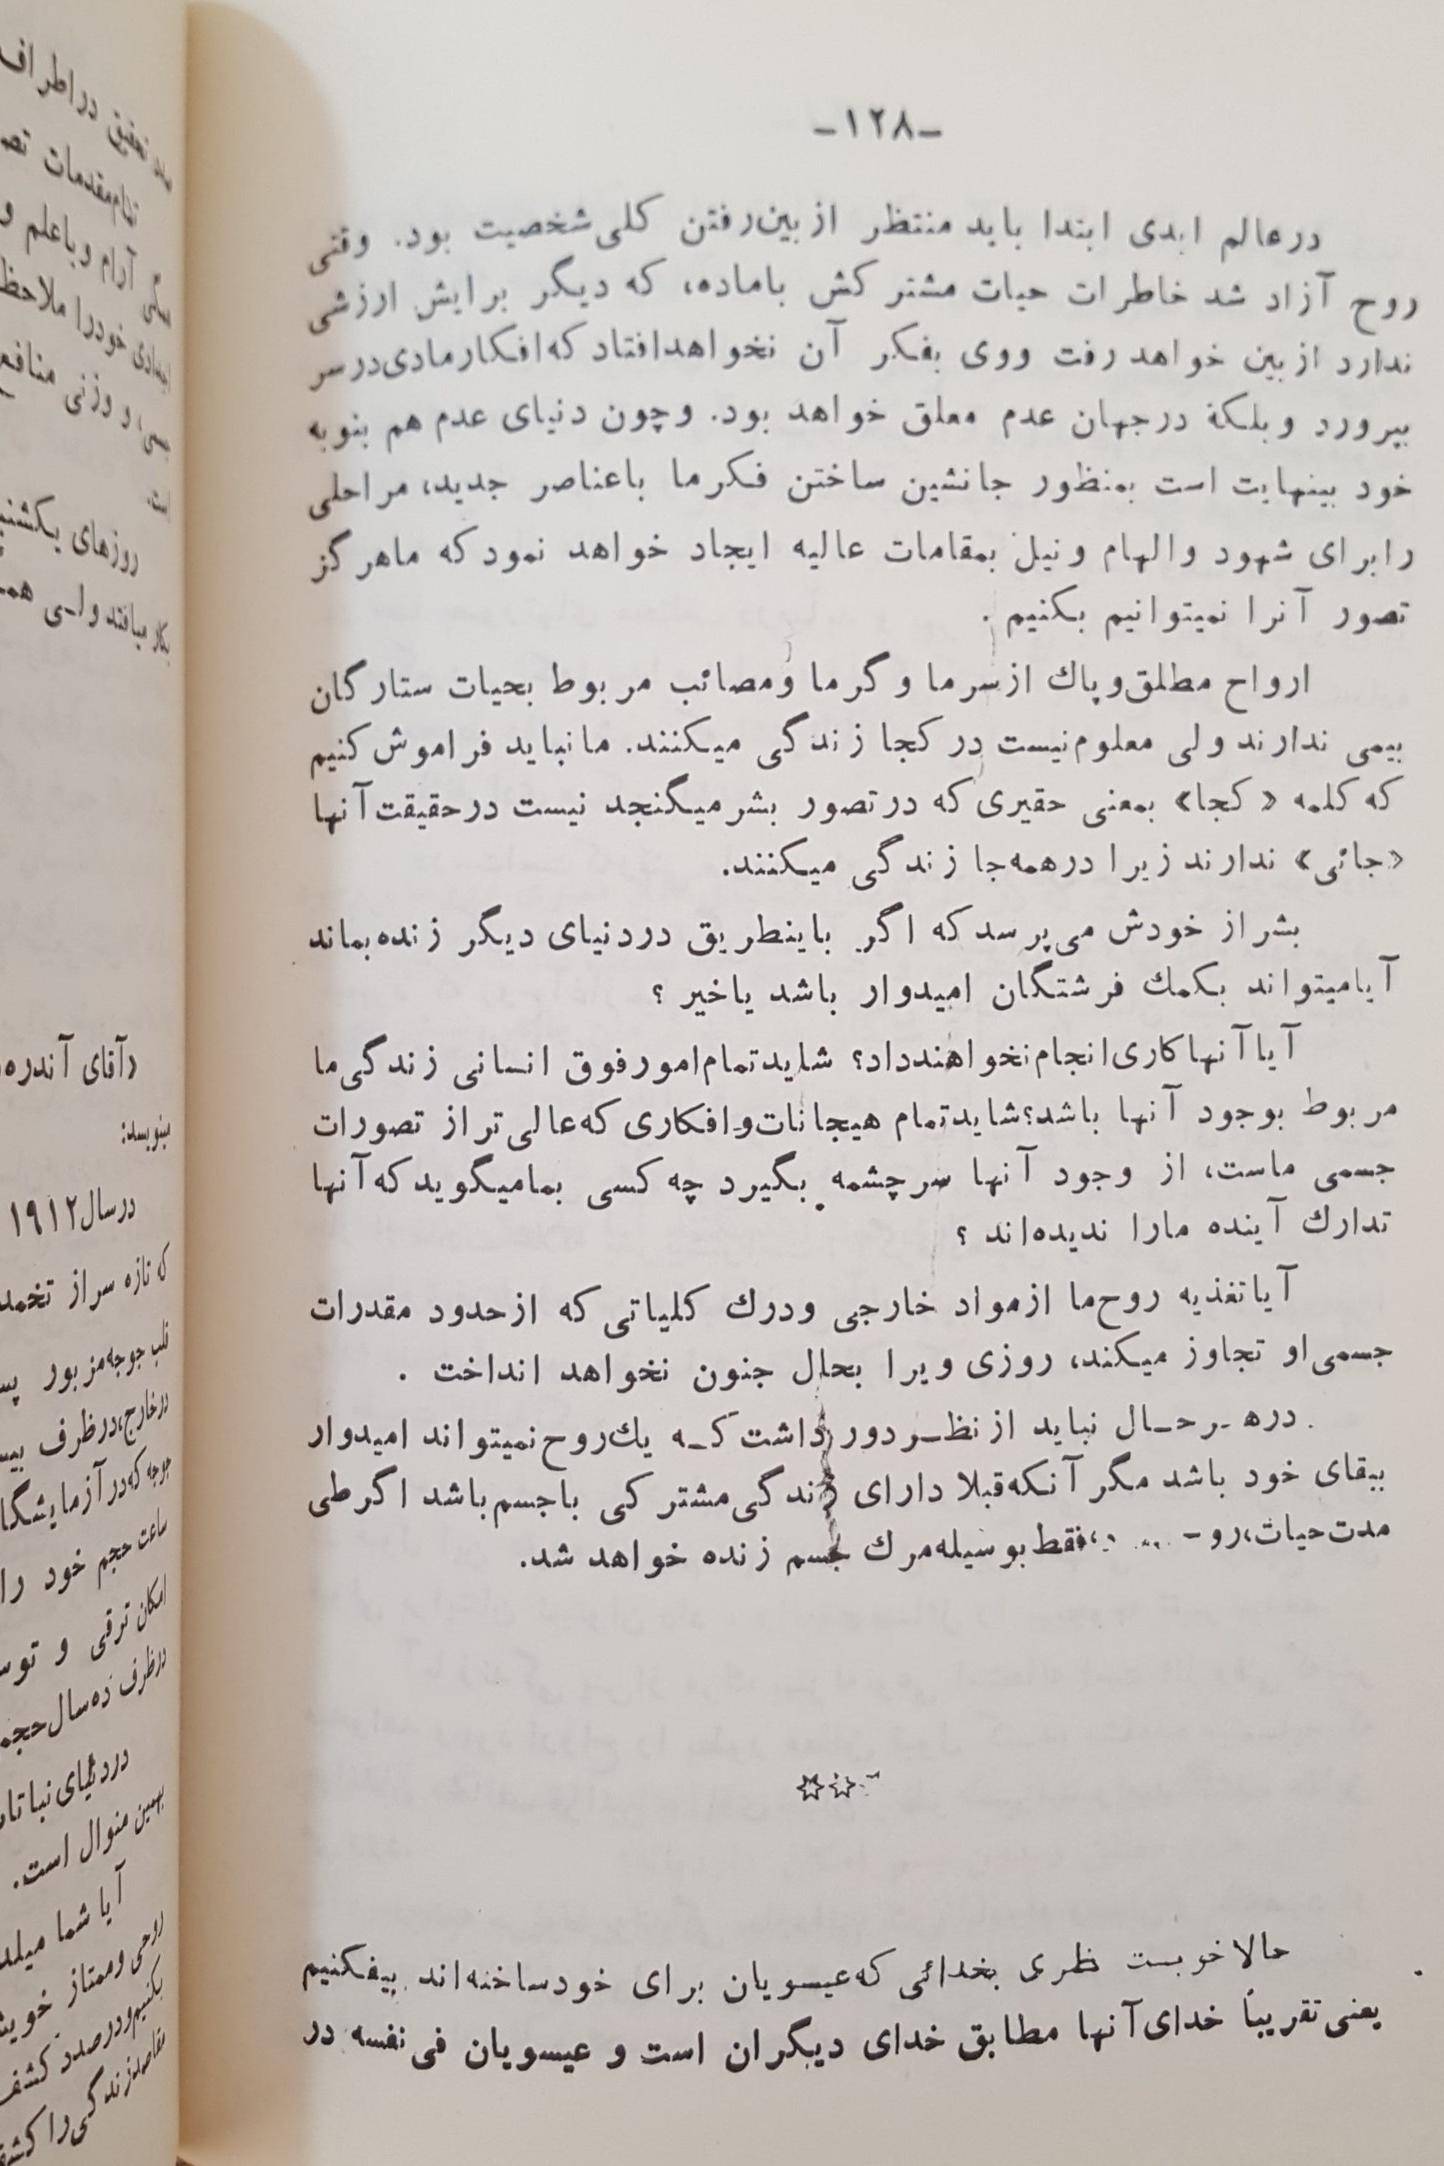 -۱۲۸-
در عالم ابدی ابتدا باید منتظر از بین‌رفتن کلی شخصیت بود. وقتی
روح آزاد شد خاطرات حیات مشترکش باماده، که دیگر برایش ارزشی
ندارد از بین خواهد رفت ووی بفکر آن نخواهدافتاد که‌افکارمادی‌درسر
بپرورد و بلکهٔ درجهان عدم معلق خواهد بود. و چون دنیای عدم هم بنوبه
خود بینهایت است بمنظور جانشین ساختن فکر ما باعناصر جدید، مراحلی
رابرای شهود والهام ونیل بمقامات عالیه ایجاد خواهد نمود که ماهرگز
تصور آنرا نمیتوانیم بکنیم .
ارواح مطلق‌وپاك ازسرما و گرما ومصائب مربوط بحیات ستارگان
بیمی ندارند ولی معلوم‌نیست در کجا زندگی میکنند. مانباید فراموش کنیم
که کلمه «کجا» بمعنی حقیری که درتصور بشر میگنجد نیست درحقیقت آنها
«جائی» ندارند زیرا درهمه‌جا زندگی میکنند.
بشر از خودش می‌پرسد که اگر باینطریق دردنیای دیگر زنده‌بماند
آیامیتواند بکمك فرشتگان امیدوار باشد یاخیر ؟
آیاآنهاکاری‌انجام‌نخواهندداد؟ شایدتمام‌امورفوق انسانی زندگی‌ما
مربوط بوجود آنها باشد؟شایدتمام هیجانات‌وافکاری که‌عالی‌تراز تصورات
جسمی ماست، از وجود آنها سرچشمه بگیرد چه کسی بمامیگویدکه‌آنها
تدارك آینده مارا ندیده‌اند ؟
آیاتغذیه روح‌ما ازمواد خارجی ودرك کلیاتی که ازحدود مقدرات
جسمی‌او تجاوز میکند، روزی ویرا بحال جنون نخواهد انداخت .
درهـرحـال نباید ازنظـردورداشت کـه یك‌روح‌نمیتواند امیدوار
ببقای خود باشد مگر آنکه‌قبلا دارای زندگی‌مشترکی باجسم‌باشد اگرطی
مدت‌حیات، فقط‌بوسیله‌مرك جسم زنده خواهد شد.
حالا خوبست بخدائی که‌عیسویان برای خودساخته‌اند بیفکنیم
یعنی‌تقریباً خدای‌آنها مطابق خدای دیگران است و عیسویان فی‌نفسه در
تمام‌مقدمات
آرام وباعلم و
خودرا
و وزنی منافع
است.
روزهای
آقای آندره
مینویسد:
درسال۱۹۱۲
که تازه سراز
قلب جوجه‌مزبور
درخارج،درظرف
جوجه که‌در
ساعت حجم خود را
امکان ترقی و
درظرف ده‌سال‌حجم
دردنیای
بهمین منوال است.
آیا شما
روحی وممتاز
بکنیم‌ودرصدد کشف